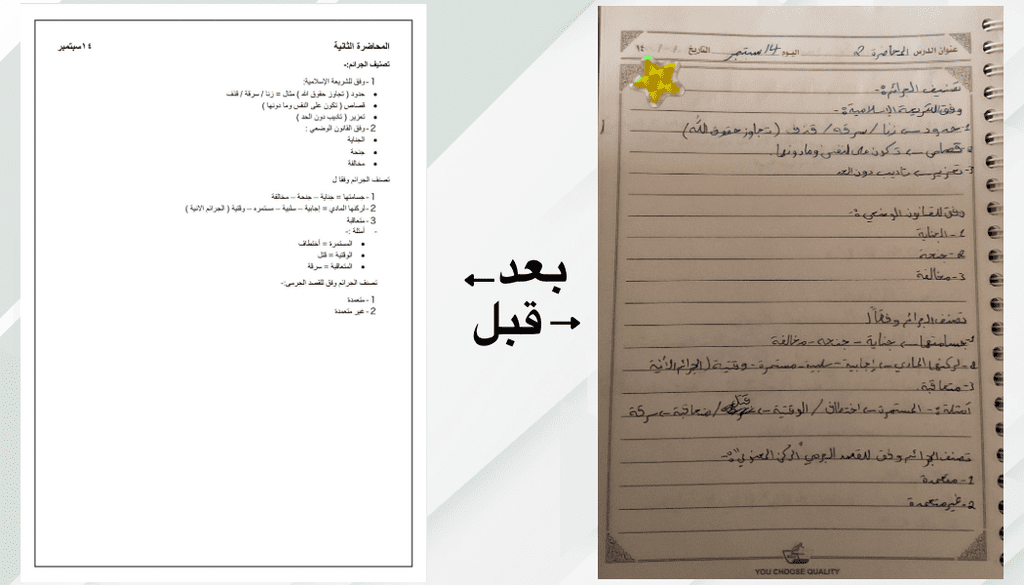 المحاضرة الثانية ١٤سبتمبر
تصنيف الجرائم:-
1- وفق للشريعة الإسلامية:
• حدود ( تجاوز حقوق الله ) مثال = زنا / سرقة / قذف
• قصاص ( تكون على النفس وما دونها )
• تعزير ( تاديب دون الحد )
2- وفق القانون الوضعي :
• الجناية
• جنحة
• مخالفة
تصنف الجرائم وفقا ل
1- جسامتها = جناية – جنحة – مخالفة
2- لركنها المادي = إجابية – سلبية – مستمره – وقتية ( الجرائم الانية )
3- متعاقبة
- أمثلة :-
• المستمرة = أختطاف
• الوقتية = قتل
• المتعاقبة = سرقة
تصنف الجرائم وفق للقصد الجرمي:-
1- متعمدة
2- غير متعمدة
بعد←
→قبل
عنوان الدرس المحاضرة 2 اليوم 14 سبتمبر التاريخ / / ١٤
تصنيف الجرائم:-
وفق للشريعة الإسلامية:-
1- حدود ← زنا / سرقه / قذف (تجاوز حقوق الله)
2- قصاص ← تكون على النفس ومادونها.
3- تعزير ← تاديب دون الحد
وفق للقانون الوضعي:-
1- الجناية
2- جنحة
3- مخالفة
تصنف الجرائم وفقاً ل
1- جسامتها ← جناية - جنحه - مخالفة
2- لركنها المادي ← إجابية - سلبية - مستمرة - وقتية (الجرائم الأنية
3- متعاقبة.
أمثلة:- المستمرة ← اختطاف / الوقتية ← قتل / متعاقبة ← سرقة
تصنف الجرائم وفق للقصد الجرمي "الركن المعنوي":-
1- متعمدة
2- غير متعمدة
YOU CHOOSE QUALITY